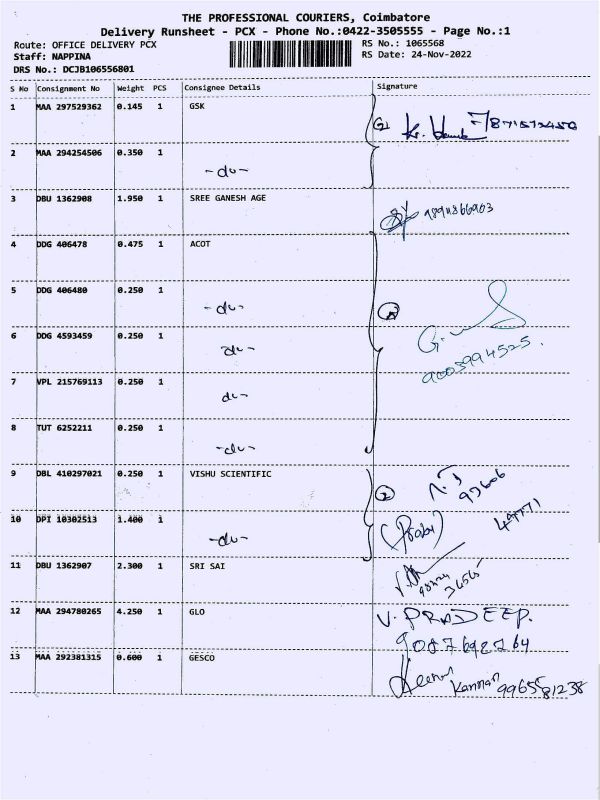 THE PROFESSIONAL COURIERS, Coimbatore
Delivery Runsheet - PCX - Phone No.:0422-3505555 - Page No.:1
Route: OFFICE DELIVERY PCX
Staff: NAPPINA
DRS No.: DCJB106556801
RS No.: 1065568
RS Date: 24-Nov-2022
S No Consignment No Weight PCS Consignee Details Signature
1 MAA 297529362 0.145 1 GSK
2 MAA 294254506 0.350 1 -do-
3 DBU 1362908 1.950 1 SREE GANESH AGE
4 DDG 406478 0.475 1 ACOT
5 DDG 406480 0.250 1 -do-
6 DDG 4593459 0.250 1 -do-
7 VPL 215769113 0.250 1 do-
8 TUT 6252211 0.250 1 -do-
9 DBL 410297021 0.250 1 VISHU SCIENTIFIC
10 DPI 10302513 1.400 1 -do- (Prabu)
11 DBU 1362907 2.300 1 SRI SAI
12 MAA 294780265 4.250 1 GLO V. PRADEEP.
13 MAA 292381315 0.600 1 GESCO Kannan